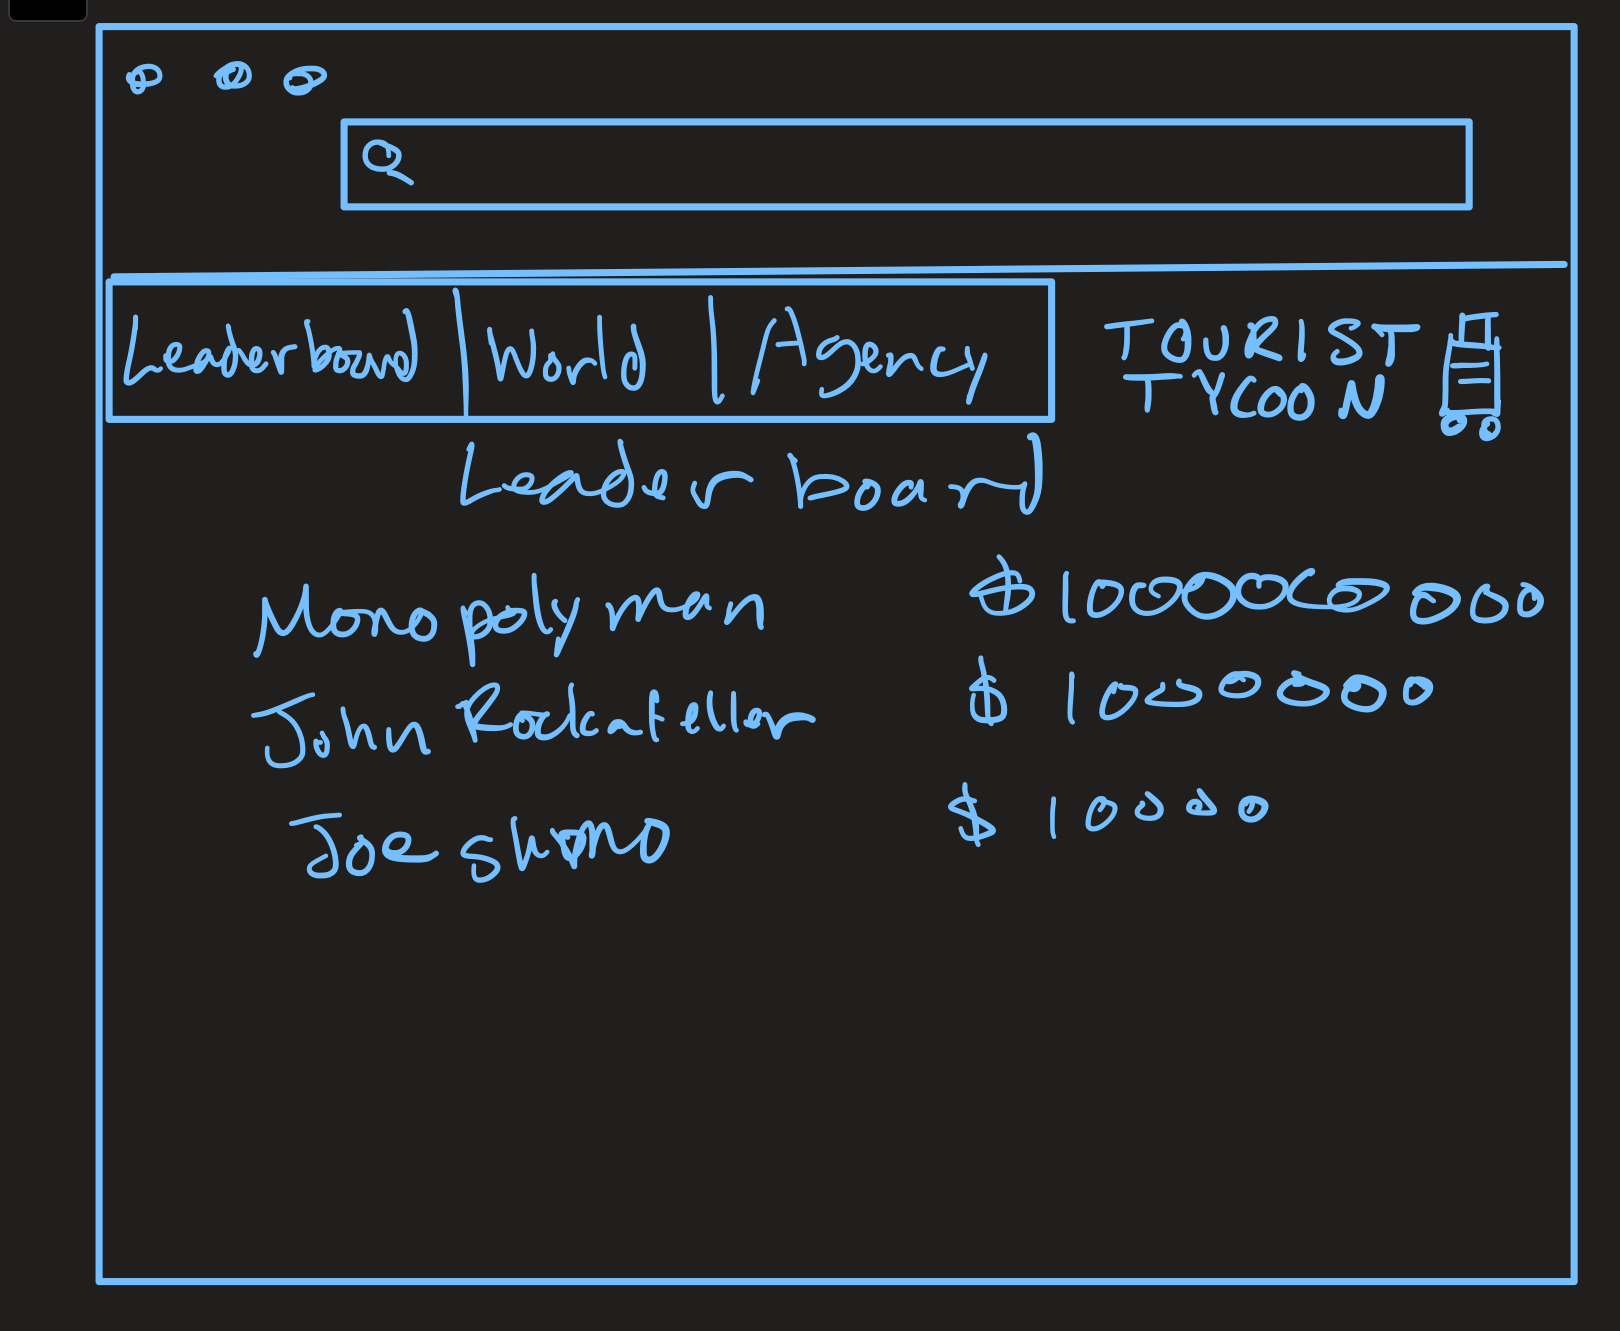 Leaderboard | World | Agency
TOURIST
TYCOON
Leaderboard
Monopoly man $ 1000000000
John Rockafeller $ 1000000
Joe shmo $ 10000